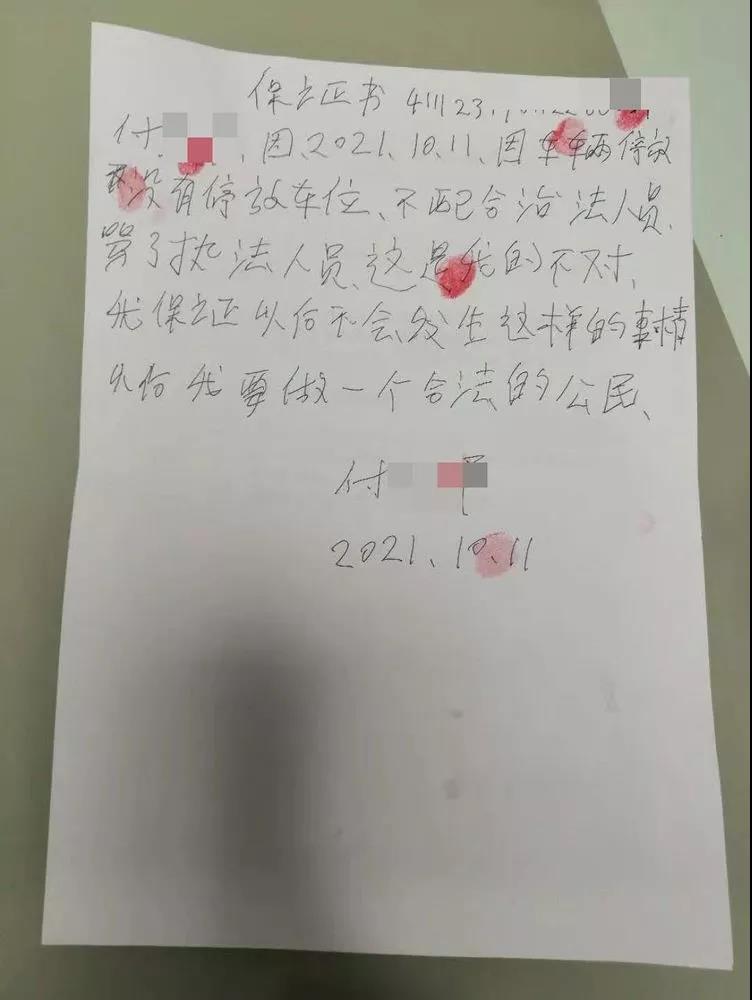 保证书 411123
付 因、2021、10、11、因车辆停放
没有停放车位、不配合治法人员、
骂了执法人员、这是我的不对、
我保证以后不会发生这样的事情
以后我要做一个合法的公民、
付
2021、10、11